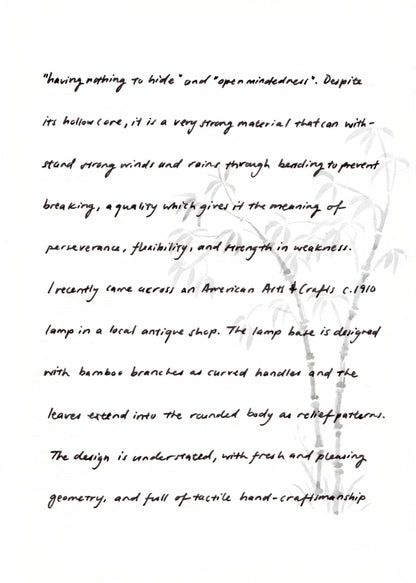 "having nothing to hide" and "openmindedness". Despite
its hollow core, it is a very strong material that can with-
stand strong winds and rains through bending to prevent
breaking, a quality which gives it the meaning of
perseverance, flexibility, and strength in weakness.
I recently came across an American Arts & Crafts c.1910
lamp in a local antique shop. The lamp base is designed
with bamboo branches as curved handles and the
leaves extend into the rounded body as relief patterns.
The design is understated, with fresh and pleasing
geometry, and full of tactile hand-craftsmanship